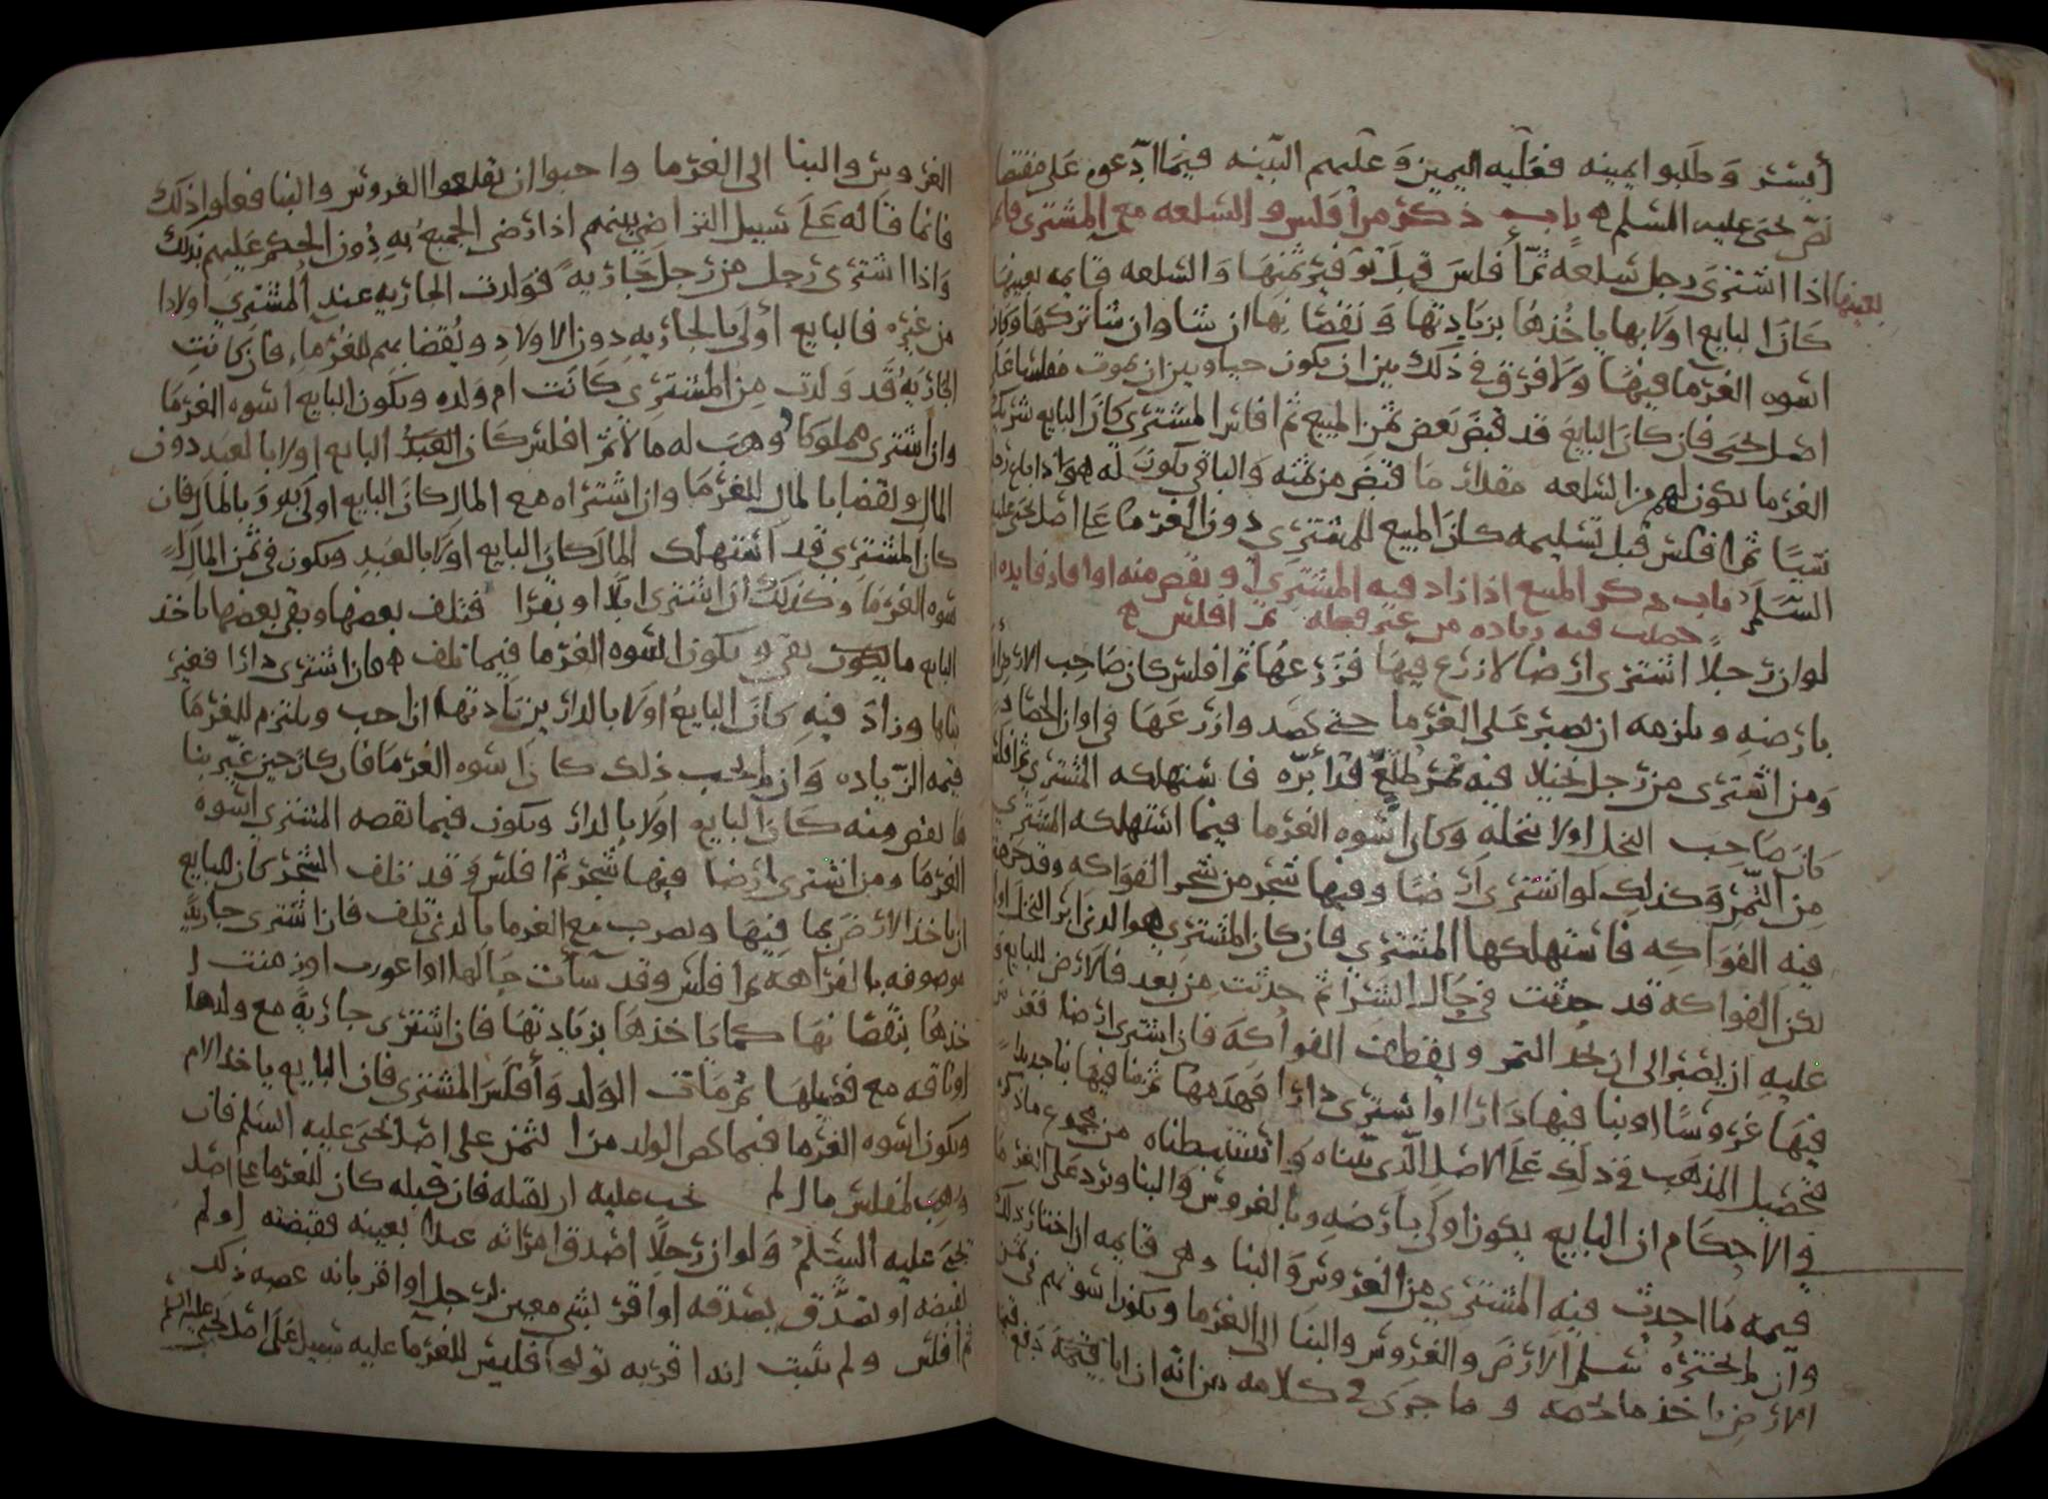 أيسر وطلبوا يمينه فعليه اليمين وعليهم البينه فيما ادعوه على مقتضا
نص يحيى عليه السلم ه باب ذكر من افلس والسلعه مع المشترى قايمه
بعينها
اذا اشترى رجل سلعه ثم أفلس قبل توفير ثمنها والسلعه قايمه بعينها
كان البايع اولا بها ياخذها بزيادتها ونقصانها ان شا وان شا تركها وكان
اسوه الغرما فيها ولا فرق في ذلك بين ان يكون حيا وبين ان يموت مفلسا على
اصل يحيى فان كان البايع قد قبض بعض ثمن المبيع ثم افلس المشترى كان البايع شريك
الغرما يكون لهم من السلعه مقدار ما قبض من ثمنه والباقي يكون له هو اذا باع رجل
شيئا ثم افلس قبل تسليمه كان المبيع للمشتري دون الغرما على اصل يحيى عليه
السلم باب ذكر المبيع اذا زاد فيه المشتري او نقص منه او افاد فايده او
حصلت فيه زياده من غير فعله ثم افلس ه
لو ان رجلا اشترى ارضا لا زرع فيها فزرعها ثم افلس كان صاحب الارض اولى
بارضه ويلزمه ان يصبر على الغرما حتى يحصد وازرعها في اوان الحصاد
ومن اشترى من رجل نخيلا فيه ثمر طلع قد أبره فاستهلكه المشتري ثم افلس
كان صاحب النخل اولا بنخله وكان اسوه الغرما فيما استهلكه المشتري
من الثمر وكذلك لو اشترى ارضا وفيها شجر من شجر الفواكه وقد
فيه الفواكه فاستهلكها المشتري فان كان المشتري هو الذى ابر النخل او لم
تكن الفواكه قد حدثت في حال الشرا ثم حدثت من بعد فالارض للبايع و
عليه ان يصبر الى ان يجد الثمر ويقطف الفواكه فان اشترى ارضا فغرس
فيها غروسا او بنا فيها دارا او اشترى دارا فهدمها ثم بنا فيها بنا جديدا
فتحصيل المذهب في ذلك على الاصل الذى بيناه واستنبطناه من مجموع ما ذكره
في الاحكام ان البايع يكون اولى بارضه وبالغروس والبنا ويرد على الغرما
قيمه ما احدث فيه المشتري من الغروس والبنا وهى قايمه ان اختار ذلك
وان لم يختره سلم الارض والغروس والبنا الى الغرما ويكون اسوتهم في ثمن
الارض ياخذ ما يخصه وما جرى في كلامه من انه ان ابا قيمه دفع قيمه
الغروس والبنا الى الغرما واحبوا ان يقلعوا الغروس والبنا فعلوا ذلك
فانما قاله على سبيل التراضي بينهم اذا رضى الجميع به دون الحكم عليهم بذلك
واذا اشترى رجل من رجل جاريه فولدت الجاريه عند المشتري اولادا
من غيره فالبايع أولى بالجاريه دون الاولاد ويقضا بهم للغرما، فان كانت
الجاريه قد ولدت من المشترى كانت ام ولده ويكون البايع اسوه الغرما
وان اشترى مملوكا وهب له مالا ثم افلس كان العبد البايع اولا بالعبد دون
المال ويقضا بالمال للغرما وان اشتراه مع المال كان البايع اولى به وبالمال فان
كان المشتري قد استهلك المال كان البايع اولا بالعبد ويكون في ثمن المال ا
سوه الغرما وكذلك ان اشترى ابلا او بقرا فتلف بعضها وبقى بعضها ياخذ
البايع ما يكون بقى ويكون اسوه الغرما فيما تلف ه فان اشترى دارا فغير
بناها وزاد فيه كان البايع اولا بالدار بزيادتها ان احب ويلتزم للغرما
قيمه الزياده وان لم يحب ذلك كان اسوه الغرما فان كان حين غير بنا
ها نقص منه كان البايع اولا بالدار ويكون فيما نقصه المشتري اسوه
الغرما ومن اشترى ارضا فيها شجر ثم افلس وقد تلف الشجر كان للبايع
ان ياخذ الارض بما فيها ويضرب مع الغرما بالذي تلف فان اشترى جاريه
موصوفه بالفراهه ثم افلس وقد سأت حالها او اعورت او زمنت ا
خذها بنقصانها كما ياخذها بزيادتها فان اشترى جاريه مع ولدها
او ناقه مع فصيلها ثم مات الولد وأفلس المشترى فان البايع ياخذ الام
ويكون اسوه الغرما فيما يخص الولد من الثمن على اصل يحيى عليه السلم فان
وهب لمفلس مال لم يجب عليه ان يقبله فان قبله كان للغرما على اصل
يحيى عليه السلم ولو ان رجلا اصدق امراته عبدا بعينه فقبضته او لم
تقبضه او تصدق بصدقه او اقر بشي معين لرجل او اقر بانه غصبه ذلك
ثم افلس ولم يثبت انه اقر به توليجا فليس للغرما عليه سبيل على اصل يحيى عليه السلم